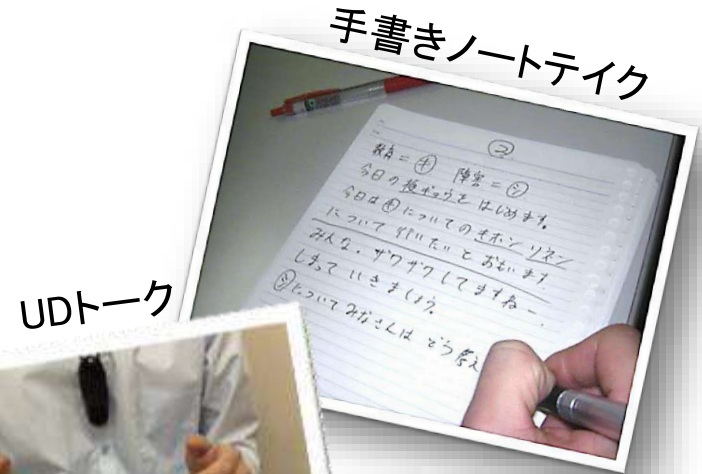 手書きノートテイク
②
教育=㋖ 障害=㋛
今日の授ギョウをはじめます。
今日は㋖についてのキホンリネン
について行いたいとおもいます
みんな、ザワザワしてますねー。
しまっていきましょう。
㋛についてみなさんはどう考え
UDトーク